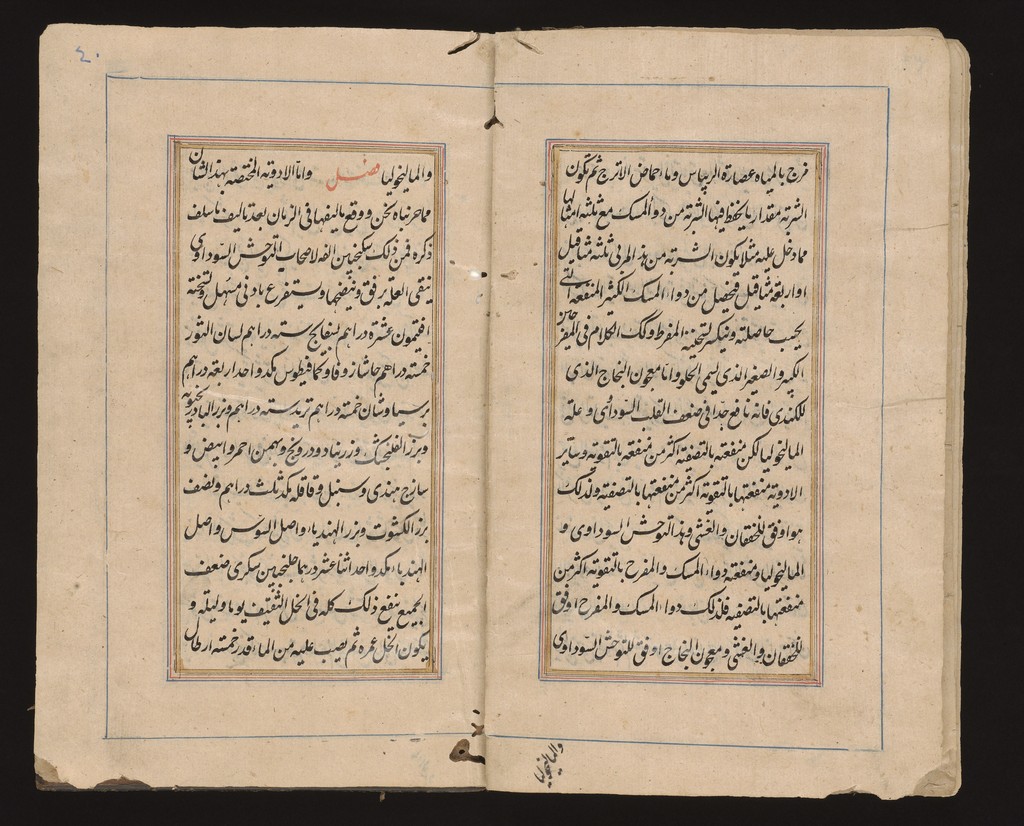 فرج بالمياه عصارة الريباس وماء حماض الاترج ثم تكون
الشربة مقدار ما يحفظ فيها الشربة من دواء المسك مع ثلثة امثالها
مما دخل عليه مثلا يكون الشربة من هذا المربى ثلثة مثاقيل
او اربعة مثاقيل فيحصل من دواء المسك الكثير المنفعة التي
يجب حاصلته وينكسر تسخينه المفرط وكك الكلام في المفرح
الكبير والصغير الذي يسمى الحلو واما معجون النجاح الذي
للكندي فانه نافع جدا في ضعف القلب السوداوي وعلة
الماليخوليا لكن منفعته بالتصفية اكثر من منفعته بالتقوية وسائر
الادوية منفعتها بالتقوية اكثر من منفعتها بالتصفية ولذلك
هو اوفق للخفقان والغشي وهذا التوحش السوداوي و
الماليخوليا ومنفعة دواء المسك والمفرح بالتقوية اكثر من
منفعتها بالتصفية فلذلك دواء المسك والمفرح اوفق
للخفقان والغشي ومعجون النجاح اوفق للتوحش السوداوي
والماليخوليا
٤٠
والماليخوليا فصل واما الادوية المختصة بهذا الشان
مما جربناه نحن ووقع تاليفها في الزمان بعد تاليف ما سلف
ذكره فمن ذلك سكنجبين الفه لاصحاب التوحش السوداوي
ينقي العلة برفق وينضجها ويستفرغ بادنى مسهل ونسخته
افتيمون عشرة دراهم بسفايج ستة دراهم لسان الثور
خمسة دراهم حاشا زوفا وكمافيطوس مكد واحد اربعة دراهم
برسياوشان خمسة دراهم تربد ستة دراهم وبزر البادرنجبويه
وبزر الفلنجمشك وزرنباد ودرونج وبهمن احمر وابيض و
ساذج هندي وسنبل وقاقلة مكد ثلث دراهم ونصف
بزر الكشوث وبزر الهندباء واصل السوس واصل
الهندباء مكد واحد اثنا عشر درهما جلنجبين سكري ضعف
الجميع ينقع ذلك كله في الخل الثقيف يوما وليلة و
يكون الخل غمره ثم يصب عليه من الماء قدر خمسة ارطال